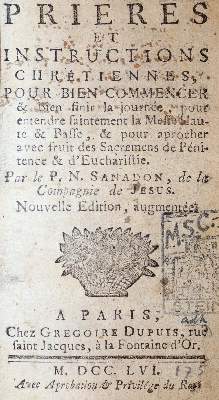 PRIERES
ET
INSTRUCTIONS
CHRÉTIENNES,
POUR BIEN COMMENCER
& bien finir la journée, pour
entendre saintement la Messe Haute
& Basse, & pour aprocher
avec fruit des Sacremens de Péni-
tence & d'Eucharistie.
Par le P. N. SANADON, de la
Compagnie de JESUS.
Nouvelle Edition, augmentée.
MSC.
A PARIS,
Chez GREGOIRE DUPUIS, rue
saint Jacques, à la Fontaine d'Or.
M. DCC. LVI.
Avec Aprobation & Privilége du Roi